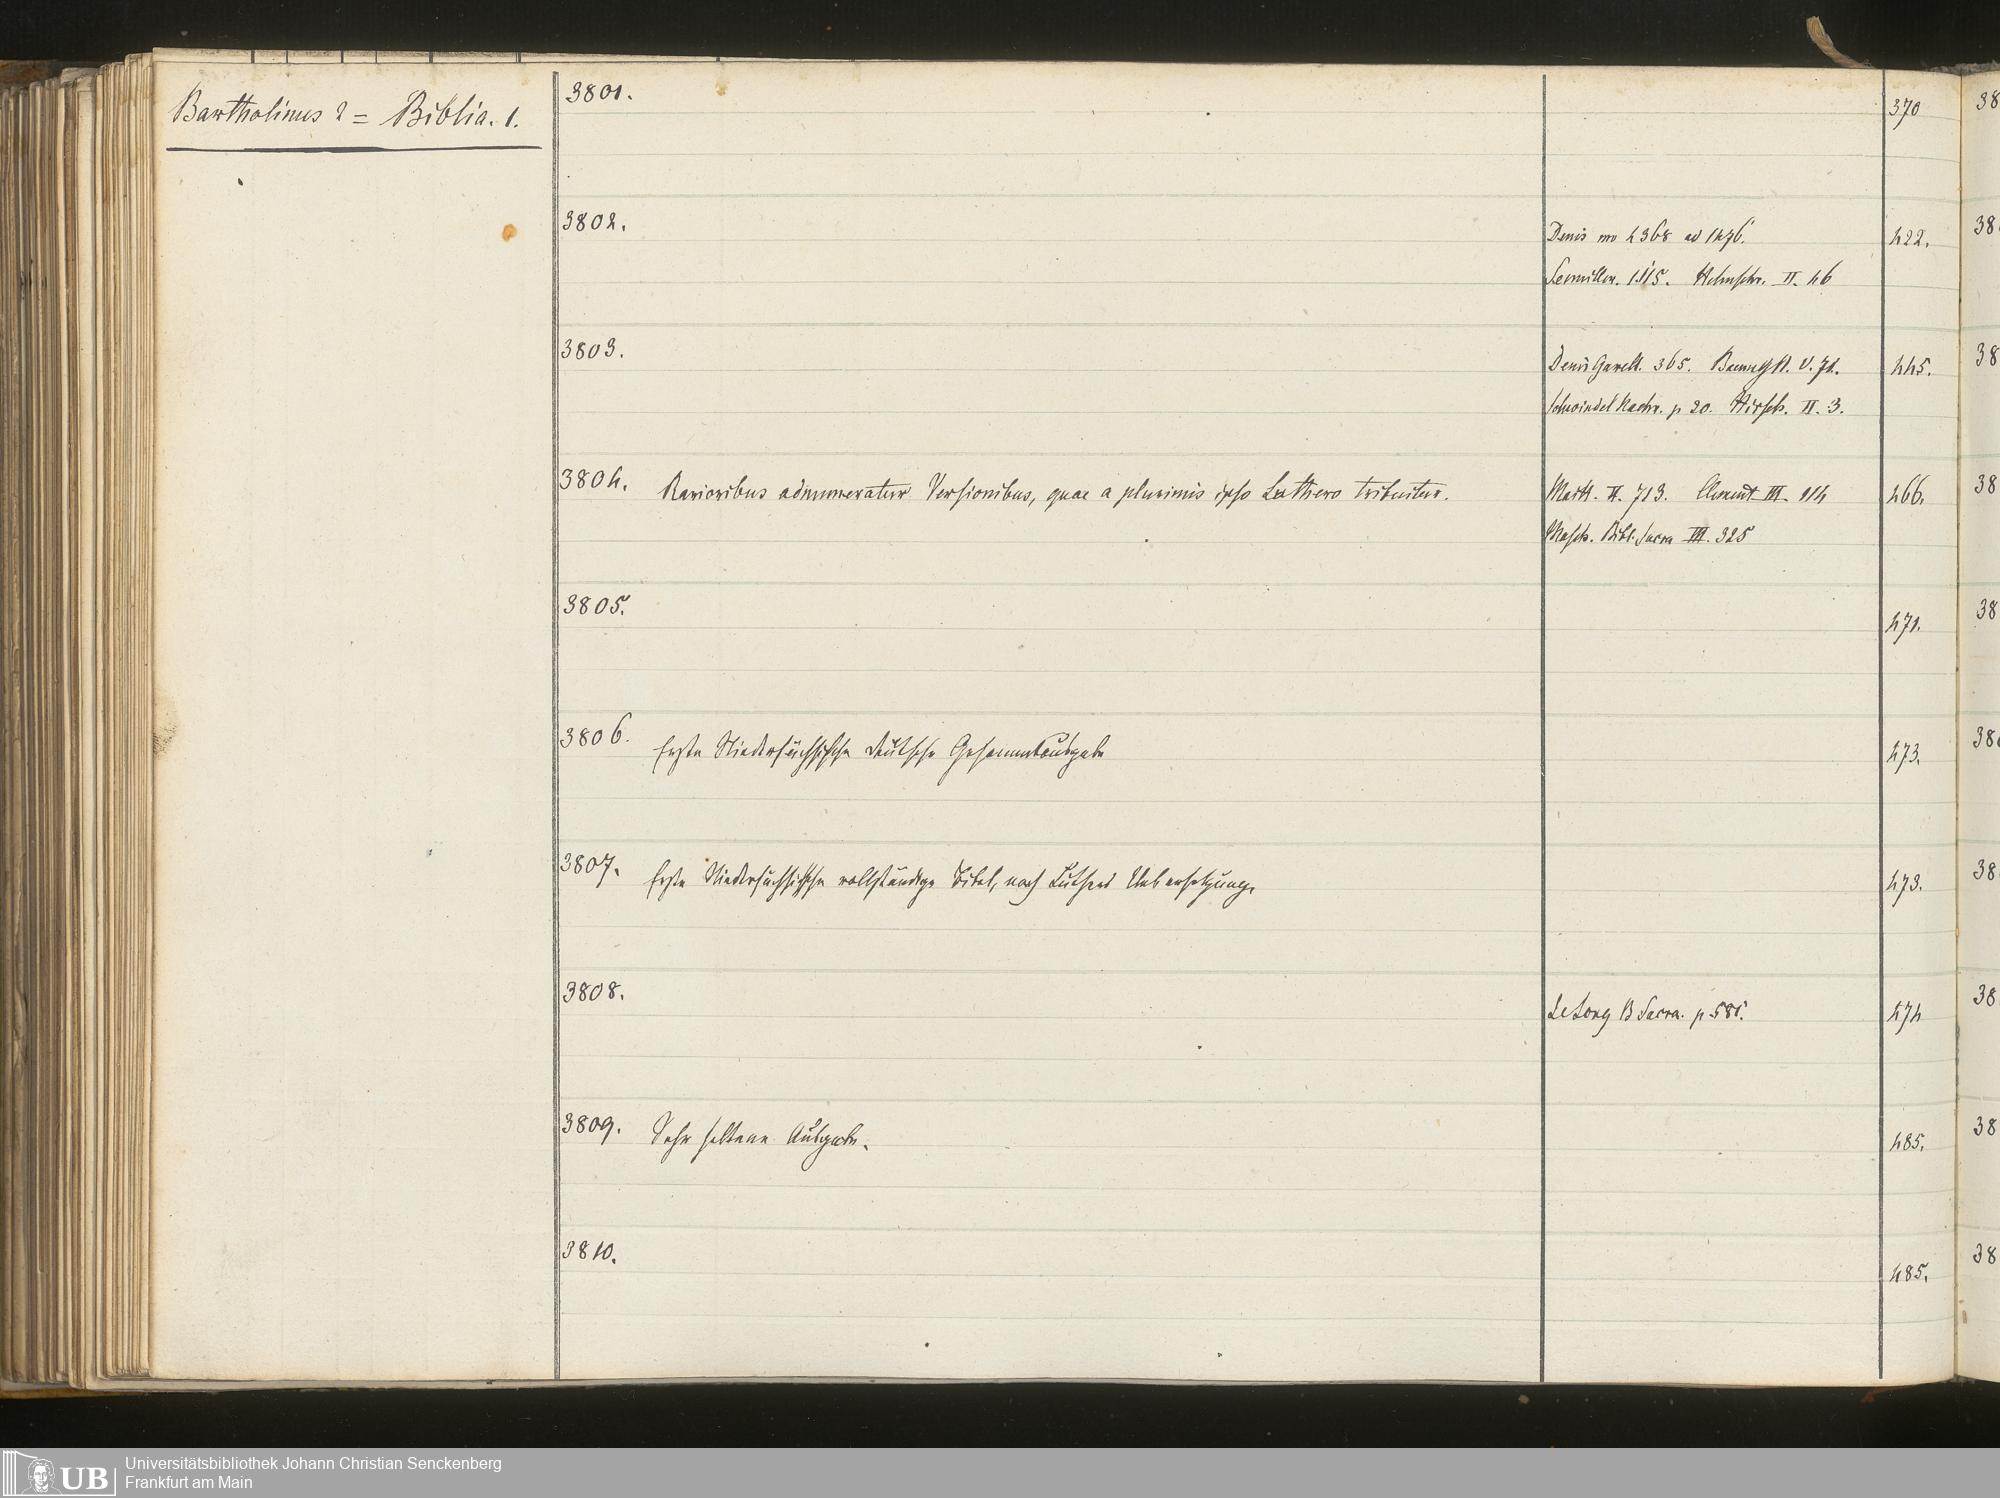 Bartholinus 2 = Biblia. 1.
3801.
370
3802.
Denis no 4368 ad 1476.
422.
1115. II. 46
3803.
Denis Garell. 365. V. 71.
445.
Schwindel Nachr. p 20. Hirsch. II. 3.
3804. Rarioribus adnumeratur Versionibus, quae a plurimis ipso Luthero tribuitur.
Maitt. II. 713. Clement III. 114
466.
Masch. Bibl. Sacra III. 325
3805.
471.
3806. Erste Niedersächsische deutsche Gesammtausgabe
473.
3807. Erste Niedersächsische vollständige Bibel, nach Luthers Uebersetzung.
473.
3808.
Le Long B Sacra. p 581.
474
3809. Sehr seltene Ausgabe.
485.
3810.
485.
38
38
38
38
38
38
38
38
38
38
UB
Universitätsbibliothek Johann Christian Senckenberg
Frankfurt am Main